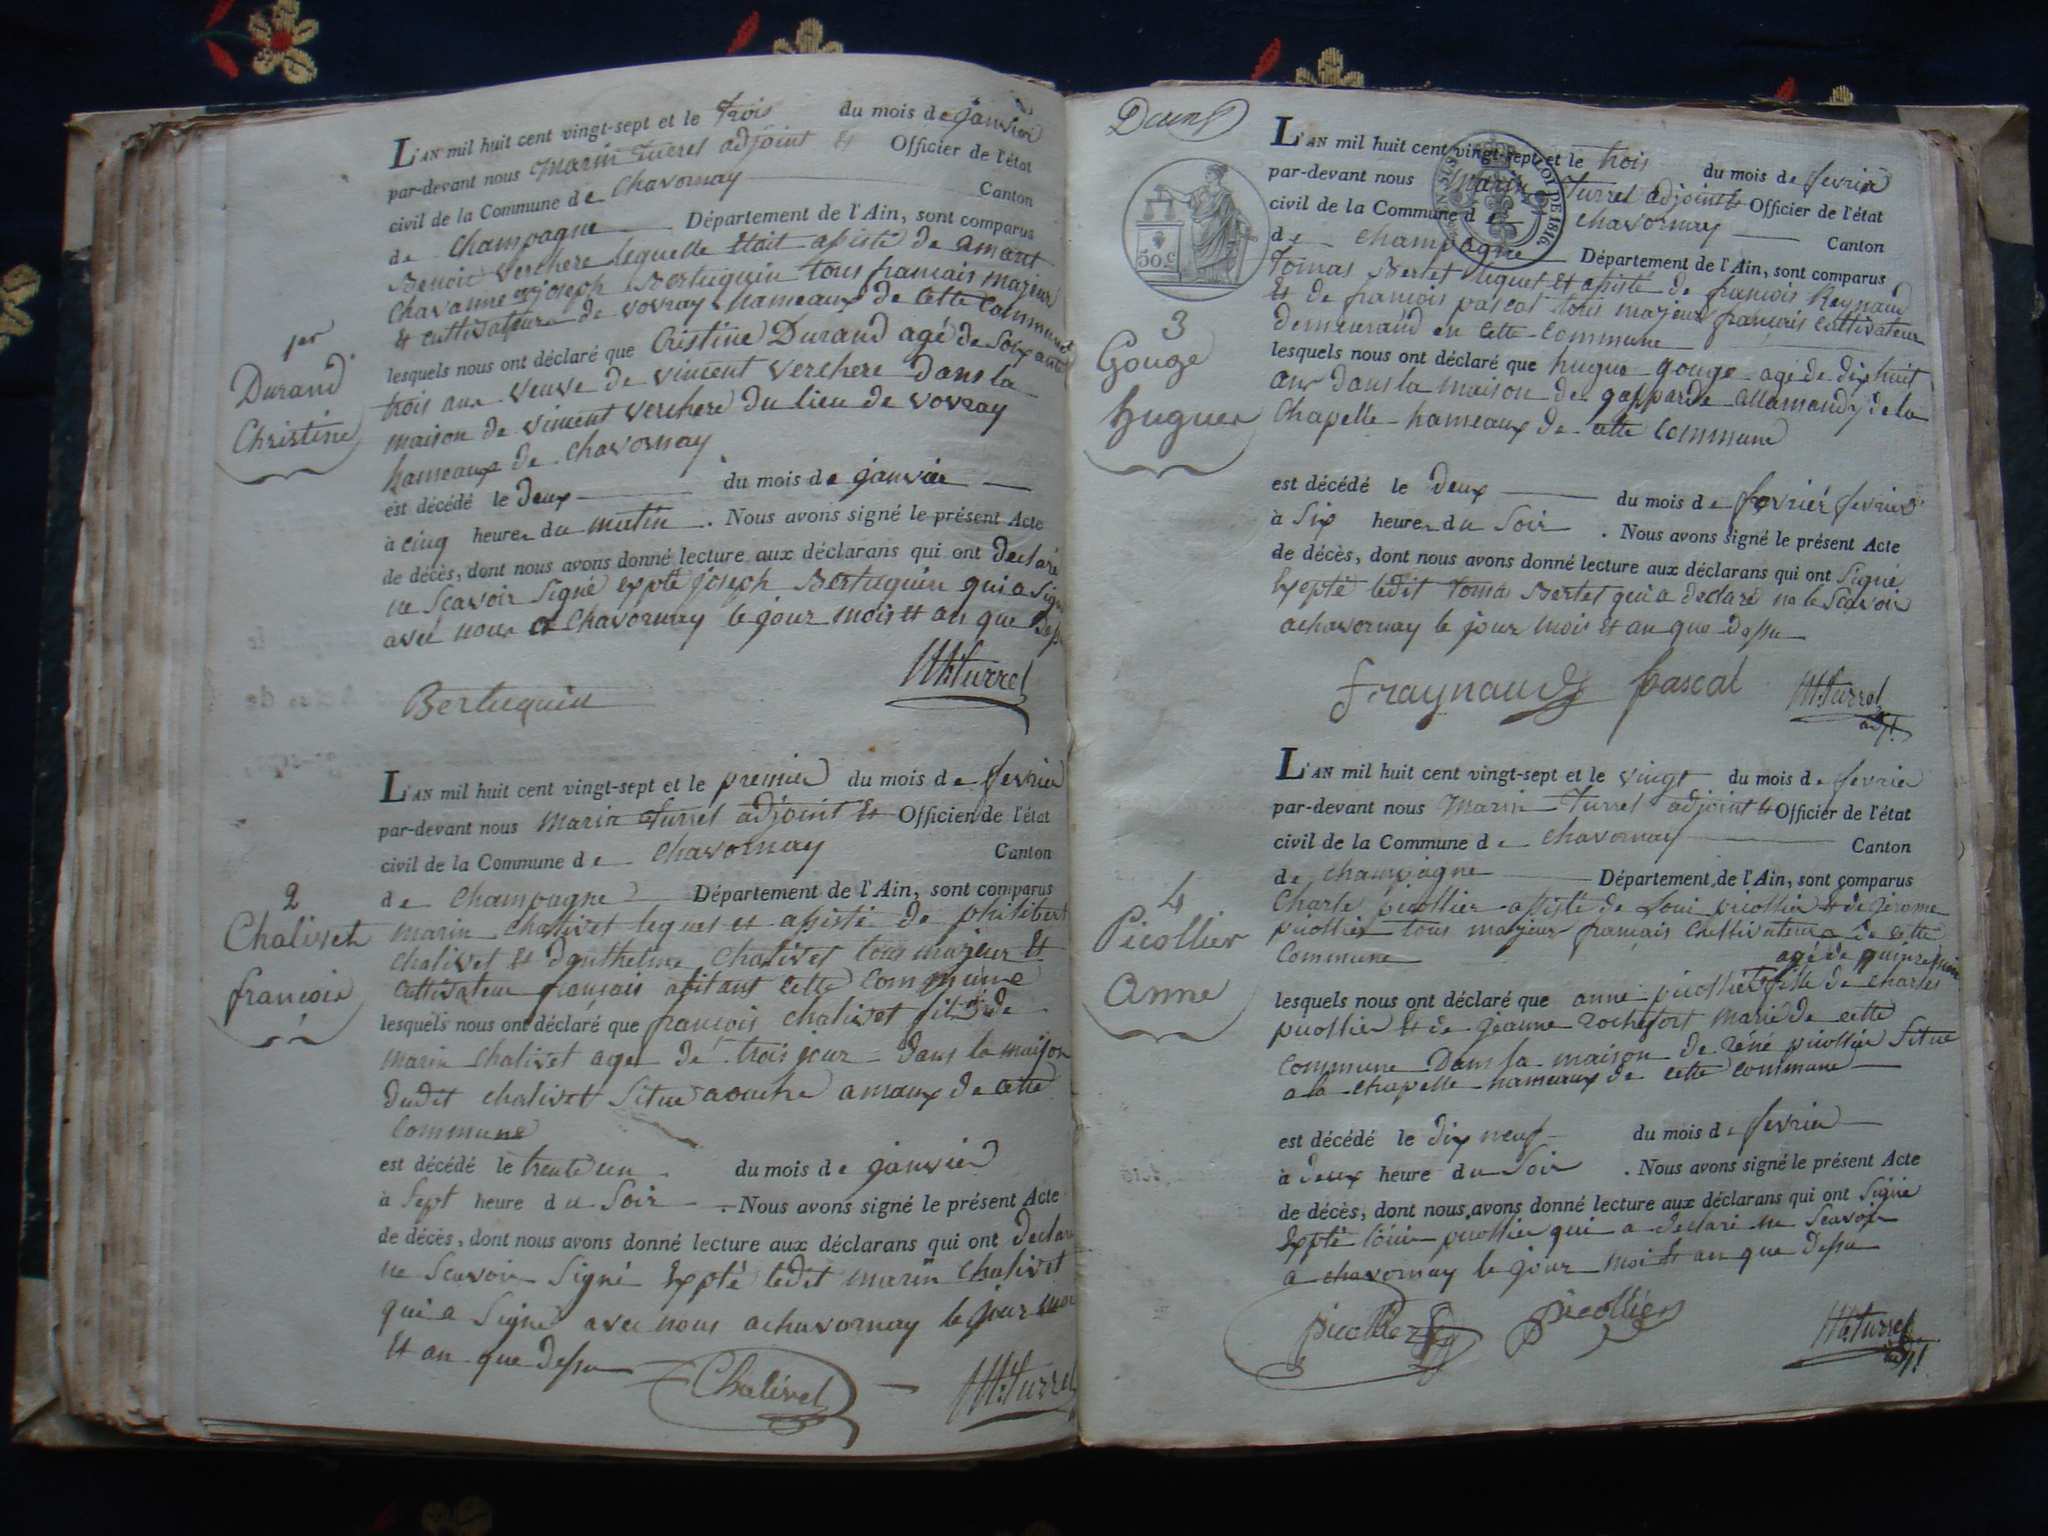 L'AN mil huit cent vingt-sept et le trois du mois de janvier
par-devant nous marin turrel adjoint et Officier de l'état
civil de la Commune de Chavornay Canton
de Champagne Département de l'Ain, sont comparus
Benoit verchere lequelle était assisté de amant
Chavanne et joseph Bertuquin tous francais majeur
et cultivateur de vovray hameaux de cette commune
1er
Durand
Christine
lesquels nous ont déclaré que Cristine Durand agé de soixante
trois ans veuve de vincent verchere dans la
maison de vincent verchere du lieu de vovray
hameaux de Chavornay
est décédé le deux du mois de janvier
à cinq heures du matin. Nous avons signé le présent Acte
de décès, dont nous avons donné lecture aux déclarans qui ont declaré
ne scavoir signé expté joseph Bertuquin qui a signé
avec nous a Chavornay le jour mois et an que
Mn turrel
Bertuquin
L'AN mil huit cent vingt-sept et le premier du mois de fevrier
par-devant nous marin turrel adjoint et Officier de l'état
civil de la Commune de Chavornay Canton
de Champagne Département de l'Ain, sont comparus
2
Chalivet
francois
marin chalivet leques et assisté de philibert
chalivet et danthelme chalivet tous majeur et
cultivateur francais abitant cette commune
lesquels nous ont déclaré que françois chalivet fils de
marin chalivet agée de trois jour dans la maison
dudit chalivet situe amaux de cette
commune
est décédé le trente un du mois de janvier
à sept heure du soir. Nous avons signé le présent Acte
de décès, dont nous avons donné lecture aux déclarans qui ont declaré
ne scavoir signé expté ledit marin chalivet
qui a signé avec nous a chavornay le jour moi
et an que dessu
Chalivet Mn turrel
L'AN mil huit cent vingt-sept et le trois du mois de fevrier
par-devant nous marin Turrel adjoint et Officier de l'état
civil de la Commune de chavornay Canton
de champagne Département de l'Ain, sont comparus
50 c
DE 1816.
Tomas Bertet huguet et assisté de francois Reynaud
et de françois pascal tous majeur français cultivateur
demeurand en cette commune
3
Gouge
hugues
lesquels nous ont déclaré que hugue gouge agé de dix huit
ans dans la maison de gasparde allamandy de la
chapelle hameaux de cette commune
est décédé le deux du mois de fevrier fevrier
à six heures du soir. Nous avons signé le présent Acte
de décès, dont nous avons donné lecture aux déclarans qui ont signé
expté ledit toma Bertet qui a declaré ne le scavoir
a chavornay le jour mois et an que dessu
fraynaud pascal Mn turrel
adj
L'AN mil huit cent vingt-sept et le vingt du mois de fevrier
par-devant nous marin turrel adjoint et Officier de l'état
civil de la Commune de chavornay Canton
de champagne Département de l'Ain, sont comparus
4
Picollier
Anne
Charle picollier assisté de Loui picollier et de jerome
picollier tous majeur francais cultivateur de cette
commune agé de quinze
lesquels nous ont déclaré que anne picollier fille de charles
picollier et de jeanne rochefort marié de cette
commune Dans la maison de réné picollier situe
a la chapelle hameaux de cette commune
est décédé le dix neuf du mois de fevrier
à deux heure du soir. Nous avons signé le présent Acte
de décès, dont nous avons donné lecture aux déclarans qui ont signé
expté loui picollier qui a declaré ne scavoir
a chavornay le jour moi et an que dessu
picollier picollier Mn turrel
adj